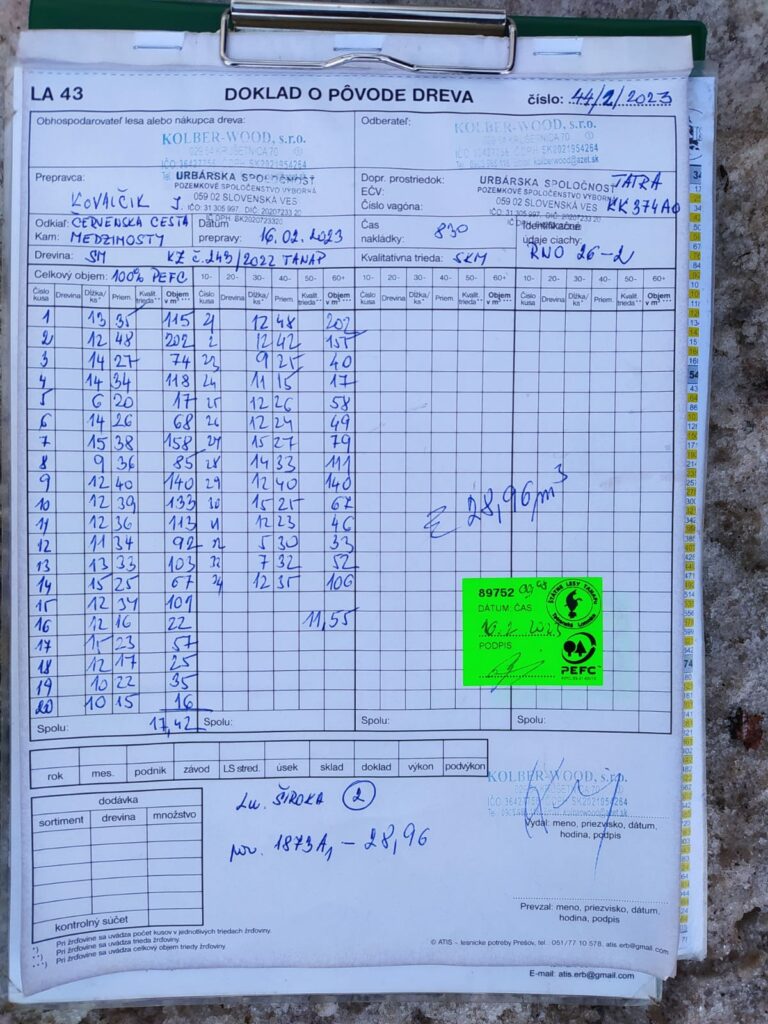 LA 43 DOKLAD O PÔVODE DREVA číslo: 44/2/2023
Obhospodarovateľ lesa alebo nákupca dreva:
KOLBER-WOOD, s.r.o.
Odberateľ:
KOLBER-WOOD, s.r.o.
Prepravca: URBÁRSKA SPOLOČNOSŤ
POZEMKOVÉ SPOLOČENSTVO VÝBORNÁ
059 02 SLOVENSKÁ VES
KOVALČIK J
Dopr. prostriedok: TATRA
EČV:
Číslo vagóna: KK 374AO
URBÁRSKA SPOLOČNOSŤ
POZEMKOVÉ SPOLOČENSTVO VÝBORNÁ
059 02 SLOVENSKÁ VES
Odkiaľ: ČERVENSKA CESTA
Kam: MEDZIMOSTY
Dátum prepravy: 16.02.2023
Čas nakládky: 830
Identifikačné údaje ciachy: RNO 26-2
Drevina: SM KZ č.243/2022 TANAP Kvalitatívna trieda: SKM
Celkový objem: 100% PEFC 10- 20- 30- 40- 50- 60+ 10- 20- 30- 40- 50- 60+ 10- 20- 30- 40- 50- 60+
Číslo kusa Drevina Dĺžka/ks* Priem. Kvalit. trieda** Objem v m³*** Číslo kusa Drevina Dĺžka/ks* Priem. Kvalit. trieda** Objem v m³*** Číslo kusa Drevina Dĺžka/ks* Priem. Kvalit. trieda** Objem v m³*** Číslo kusa Drevina Dĺžka/ks* Priem. Kvalit. trieda** Objem v m³***
1 13 35 115 21 12 48 202
2 12 48 202 2 12 42 155
3 14 27 74 23 9 25 40
4 14 34 118 24 11 15 17
5 6 20 17 25 12 26 58
6 14 26 68 26 12 24 49
7 15 38 158 27 15 27 79
8 9 36 85 28 14 33 111
9 12 40 140 29 12 40 140
10 12 39 133 30 15 25 67
11 12 36 113 31 12 23 46
12 11 34 92 32 5 30 33
13 13 33 103 33 7 32 52
14 15 25 67 34 12 35 106
15 12 34 101
16 12 16 22 11,55
17 15 23 57
18 12 17 25
19 10 22 35
20 10 15 16
Σ 28,96 m³
89752
DÁTUM ČAS
16.2 2023
PODPIS
ŠTÁTNE LESY TANAPU
Tatranská Lomnica
PEFC
Spolu: 17,42 Spolu: Spolu: Spolu:
rok mes. podnik závod LS stred. úsek sklad doklad výkon podvýkon
dodávka
sortiment drevina množstvo
kontrolný súčet
Lu. ŠIROKA 2
por. 1873A1 – 28,96
KOLBER-WOOD, s.r.o.
Vydal: meno, priezvisko, dátum,
hodina, podpis
Prevzal: meno, priezvisko, dátum,
hodina, podpis
*) Pri žrďovine sa uvádza počet kusov v jednotlivých triedach žrďoviny.
**) Pri žrďovine sa uvádza trieda žrďoviny.
***) Pri žrďovine sa uvádza celkový objem triedy žrďoviny.
© ATIS – lesnícke potreby Prešov, tel.: 051/77 10 578, atis.erb@gmail.com
E-mail: atis.erb@gmail.com